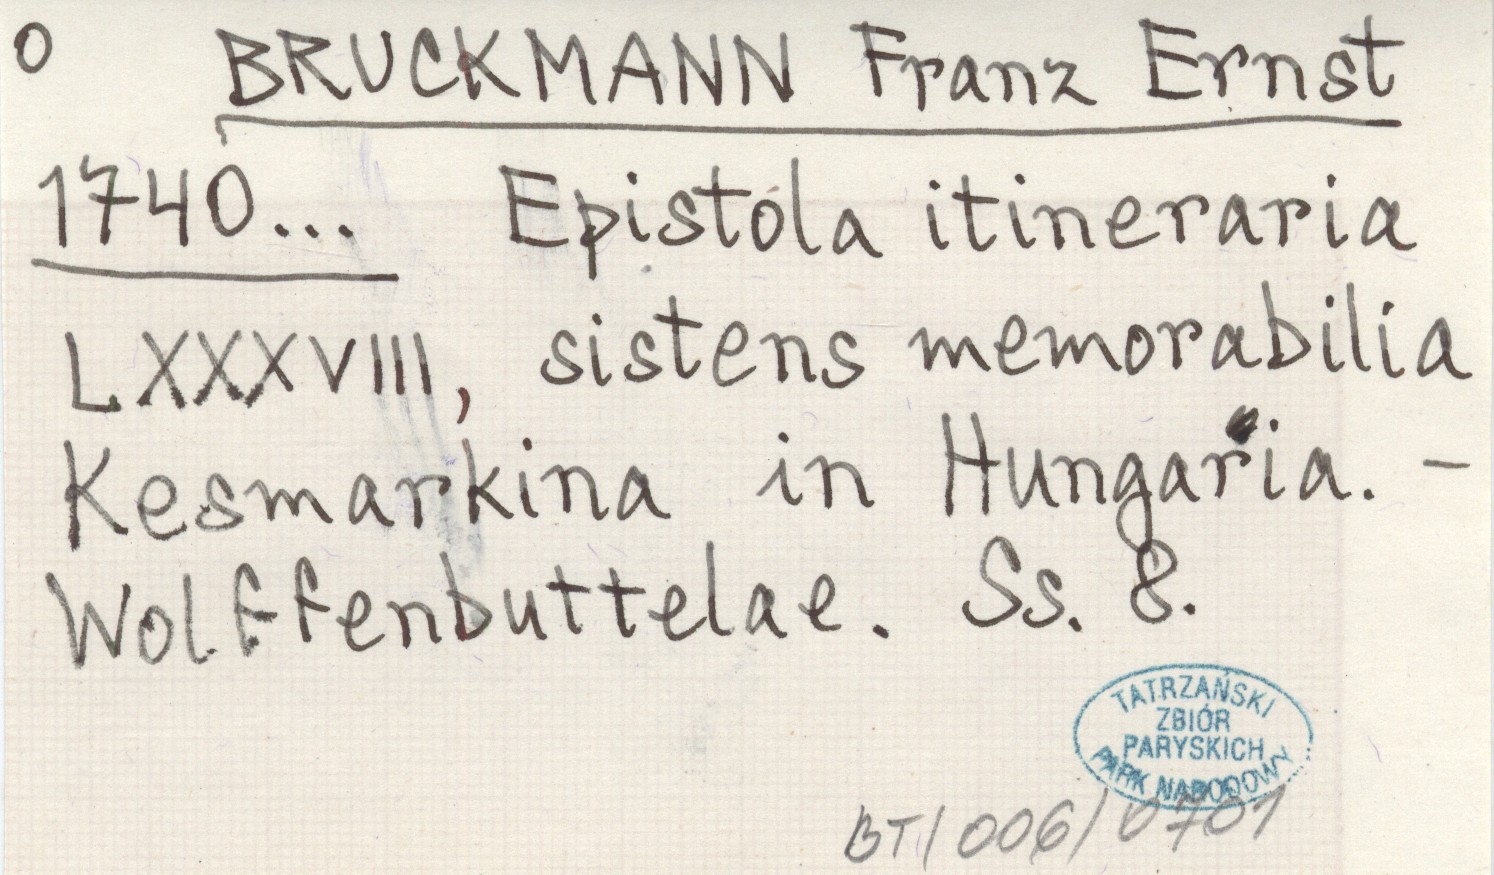 O BRUCKMANN Franz Ernst
1740... Epistola itineraria
LXXXVIII, sistens memorabilia
Kesmarkina in Hungaria. -
Wolffenbuttelae. Ss. 8.
TATRZAŃSKI
ZBIÓR
PARYSKICH
PARK NARODOWY
BT/006/0701